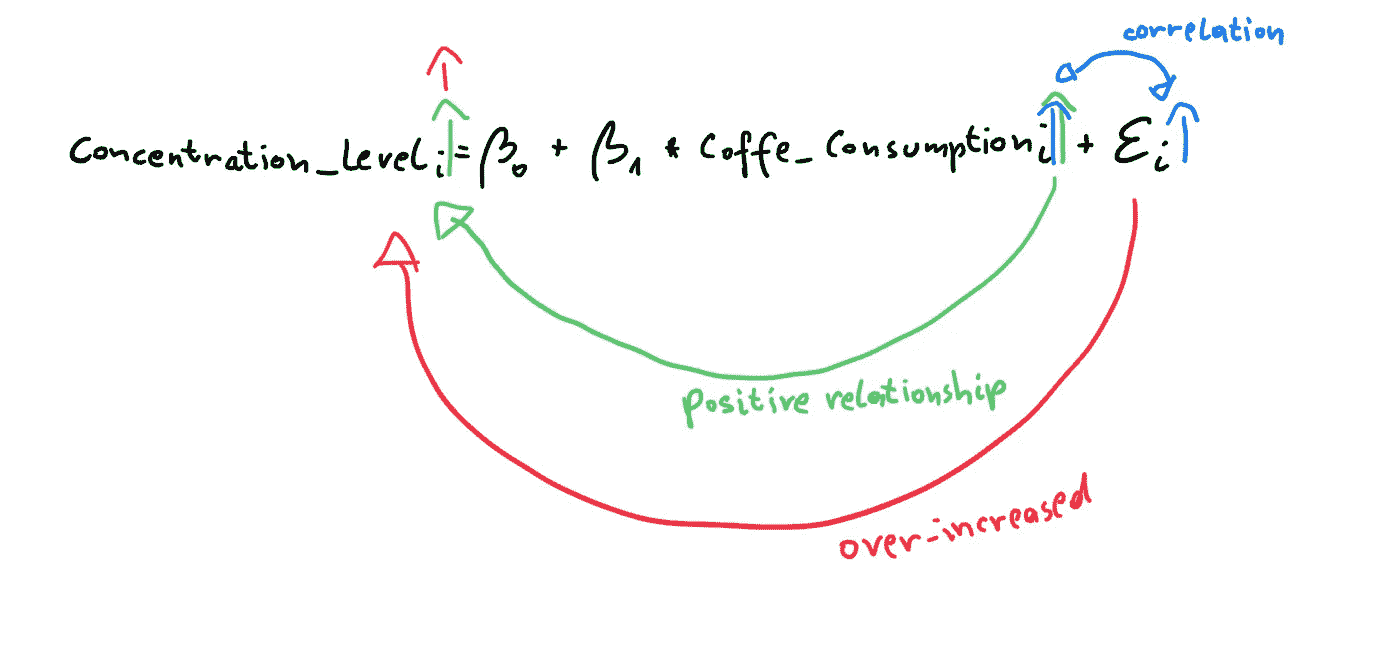 correlation
Concentration_Level i = β₀ + β₁ * Coffe_Consumption i + Ɛ i
Positive relationship
over-increased